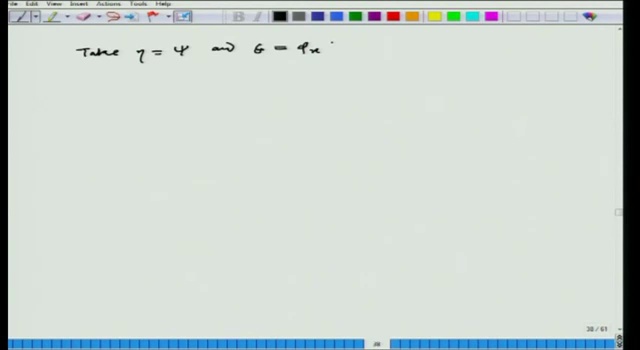 Edit View Insert Actions Tools Help
Take η = ψ and G = φₓ
38 / 61
38